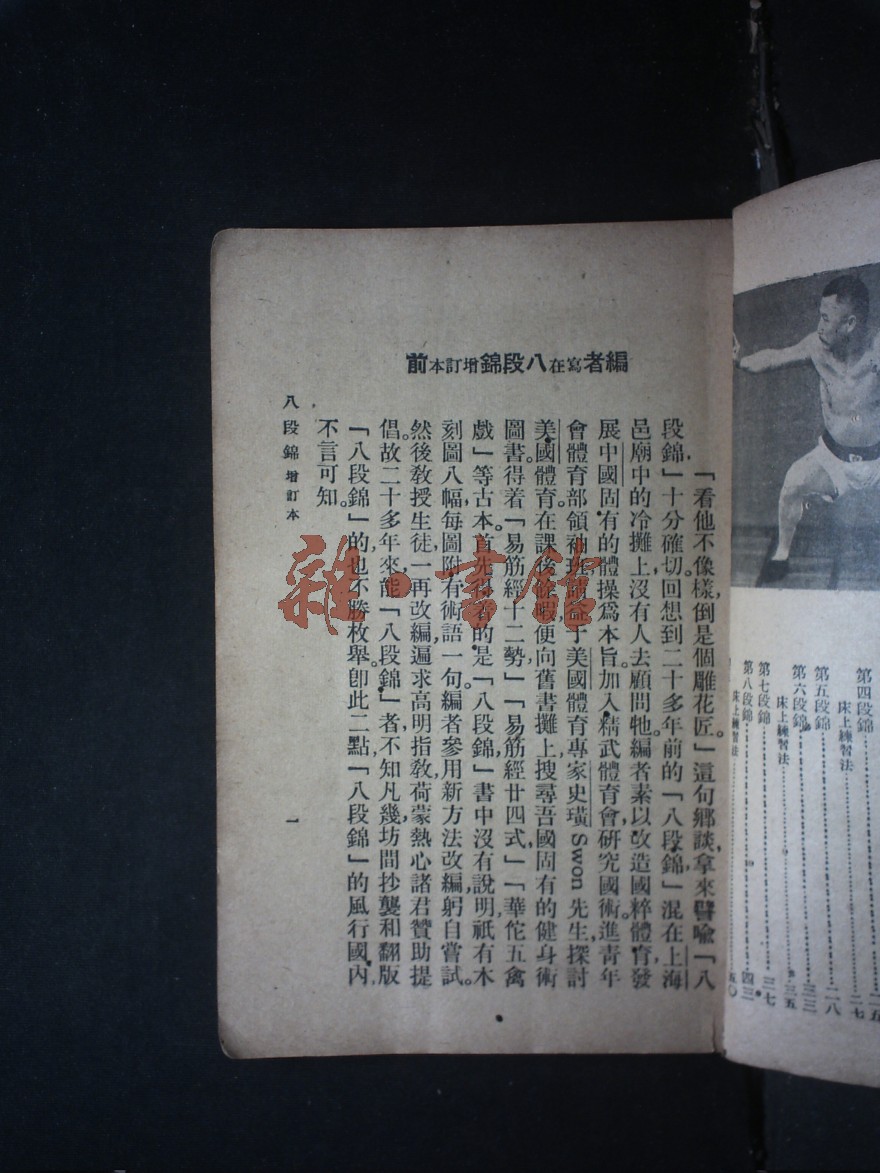 第四段錦……二五
床上練習法……二七
第五段錦……二八
第六段錦……三三
床上練習法……三五
第七段錦……三七
第八段錦……四三
床上練習法……五〇
編者寫在八段錦增訂本前
「看他不像樣，倒是個雕花匠。」這句鄉談，拿來譬喩「八
段錦」十分確切。回想到二十多年前的「八段錦」混在上海
邑廟中的冷攤上，沒有人去顧問牠。編者素以改造國粹體育，發
展中國固有的體操爲本旨。加入精武體育會，研究國術。進靑年
會體育部領袖班，請益于美國體育專家史璜 Swon 先生，探討
美國體育。在課後餘暇，便向舊書攤上搜尋吾國固有的健身術
圖書。得着「易筋經十二勢」，「易筋經廿四式」，「華佗五禽
戲」等古本。首先得着的，是「八段錦」書中沒有說明，祇有木
刻圖八幅，每圖附有術語一句。編者參用新方法改編，躬自嘗試。
然後敎授生徒，一再改編，遍求高明指敎，荷蒙熱心諸君贊助提
倡。故二十多年來，能「八段錦」者，不知凡幾，坊間抄襲和翻版
「八段錦」的，也不勝枚舉。卽此二點，「八段錦」的風行國內，
不言可知。
八段錦增訂本
一
雜·書館